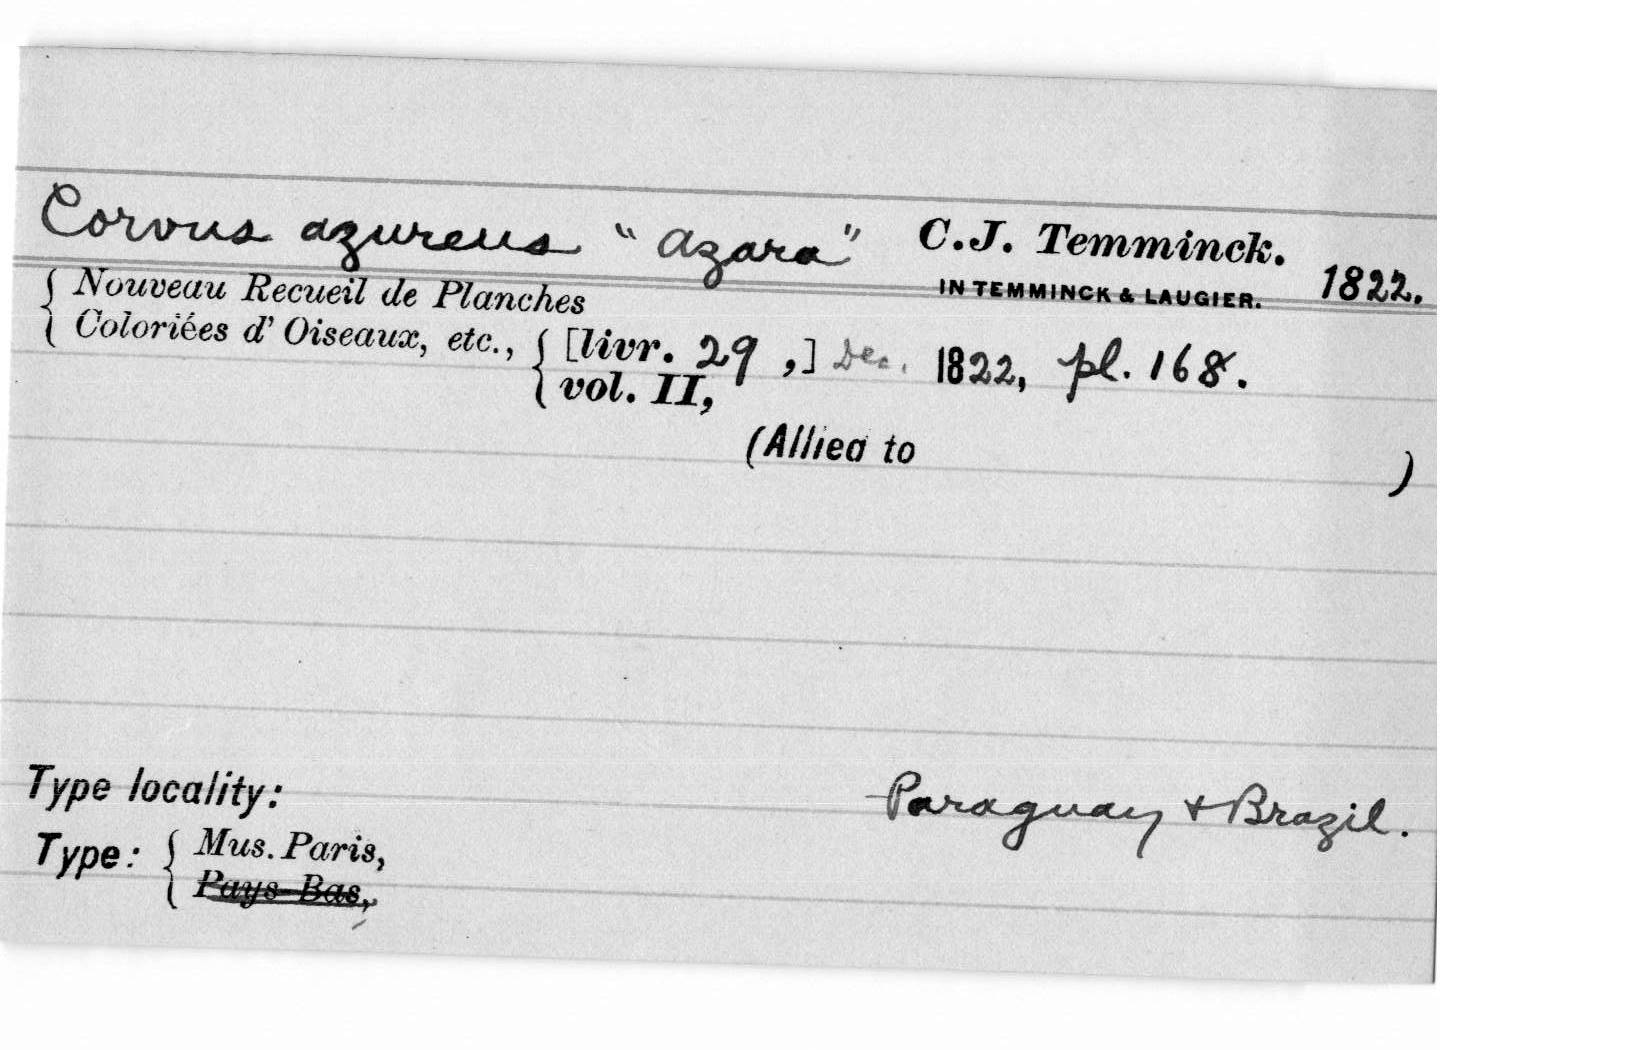 Corvus azureus "Azara" C.J. Temminck.
IN TEMMINCK & LAUGIER. 1822.
Nouveau Recueil de Planches
Coloriées d' Oiseaux, etc., [livr. 29 ,] Dec. 1822, pl. 168.
vol. II,
(Allied to )
Type locality: Paraguay & Brazil.
Type: Mus. Paris,
Pays-Bas,